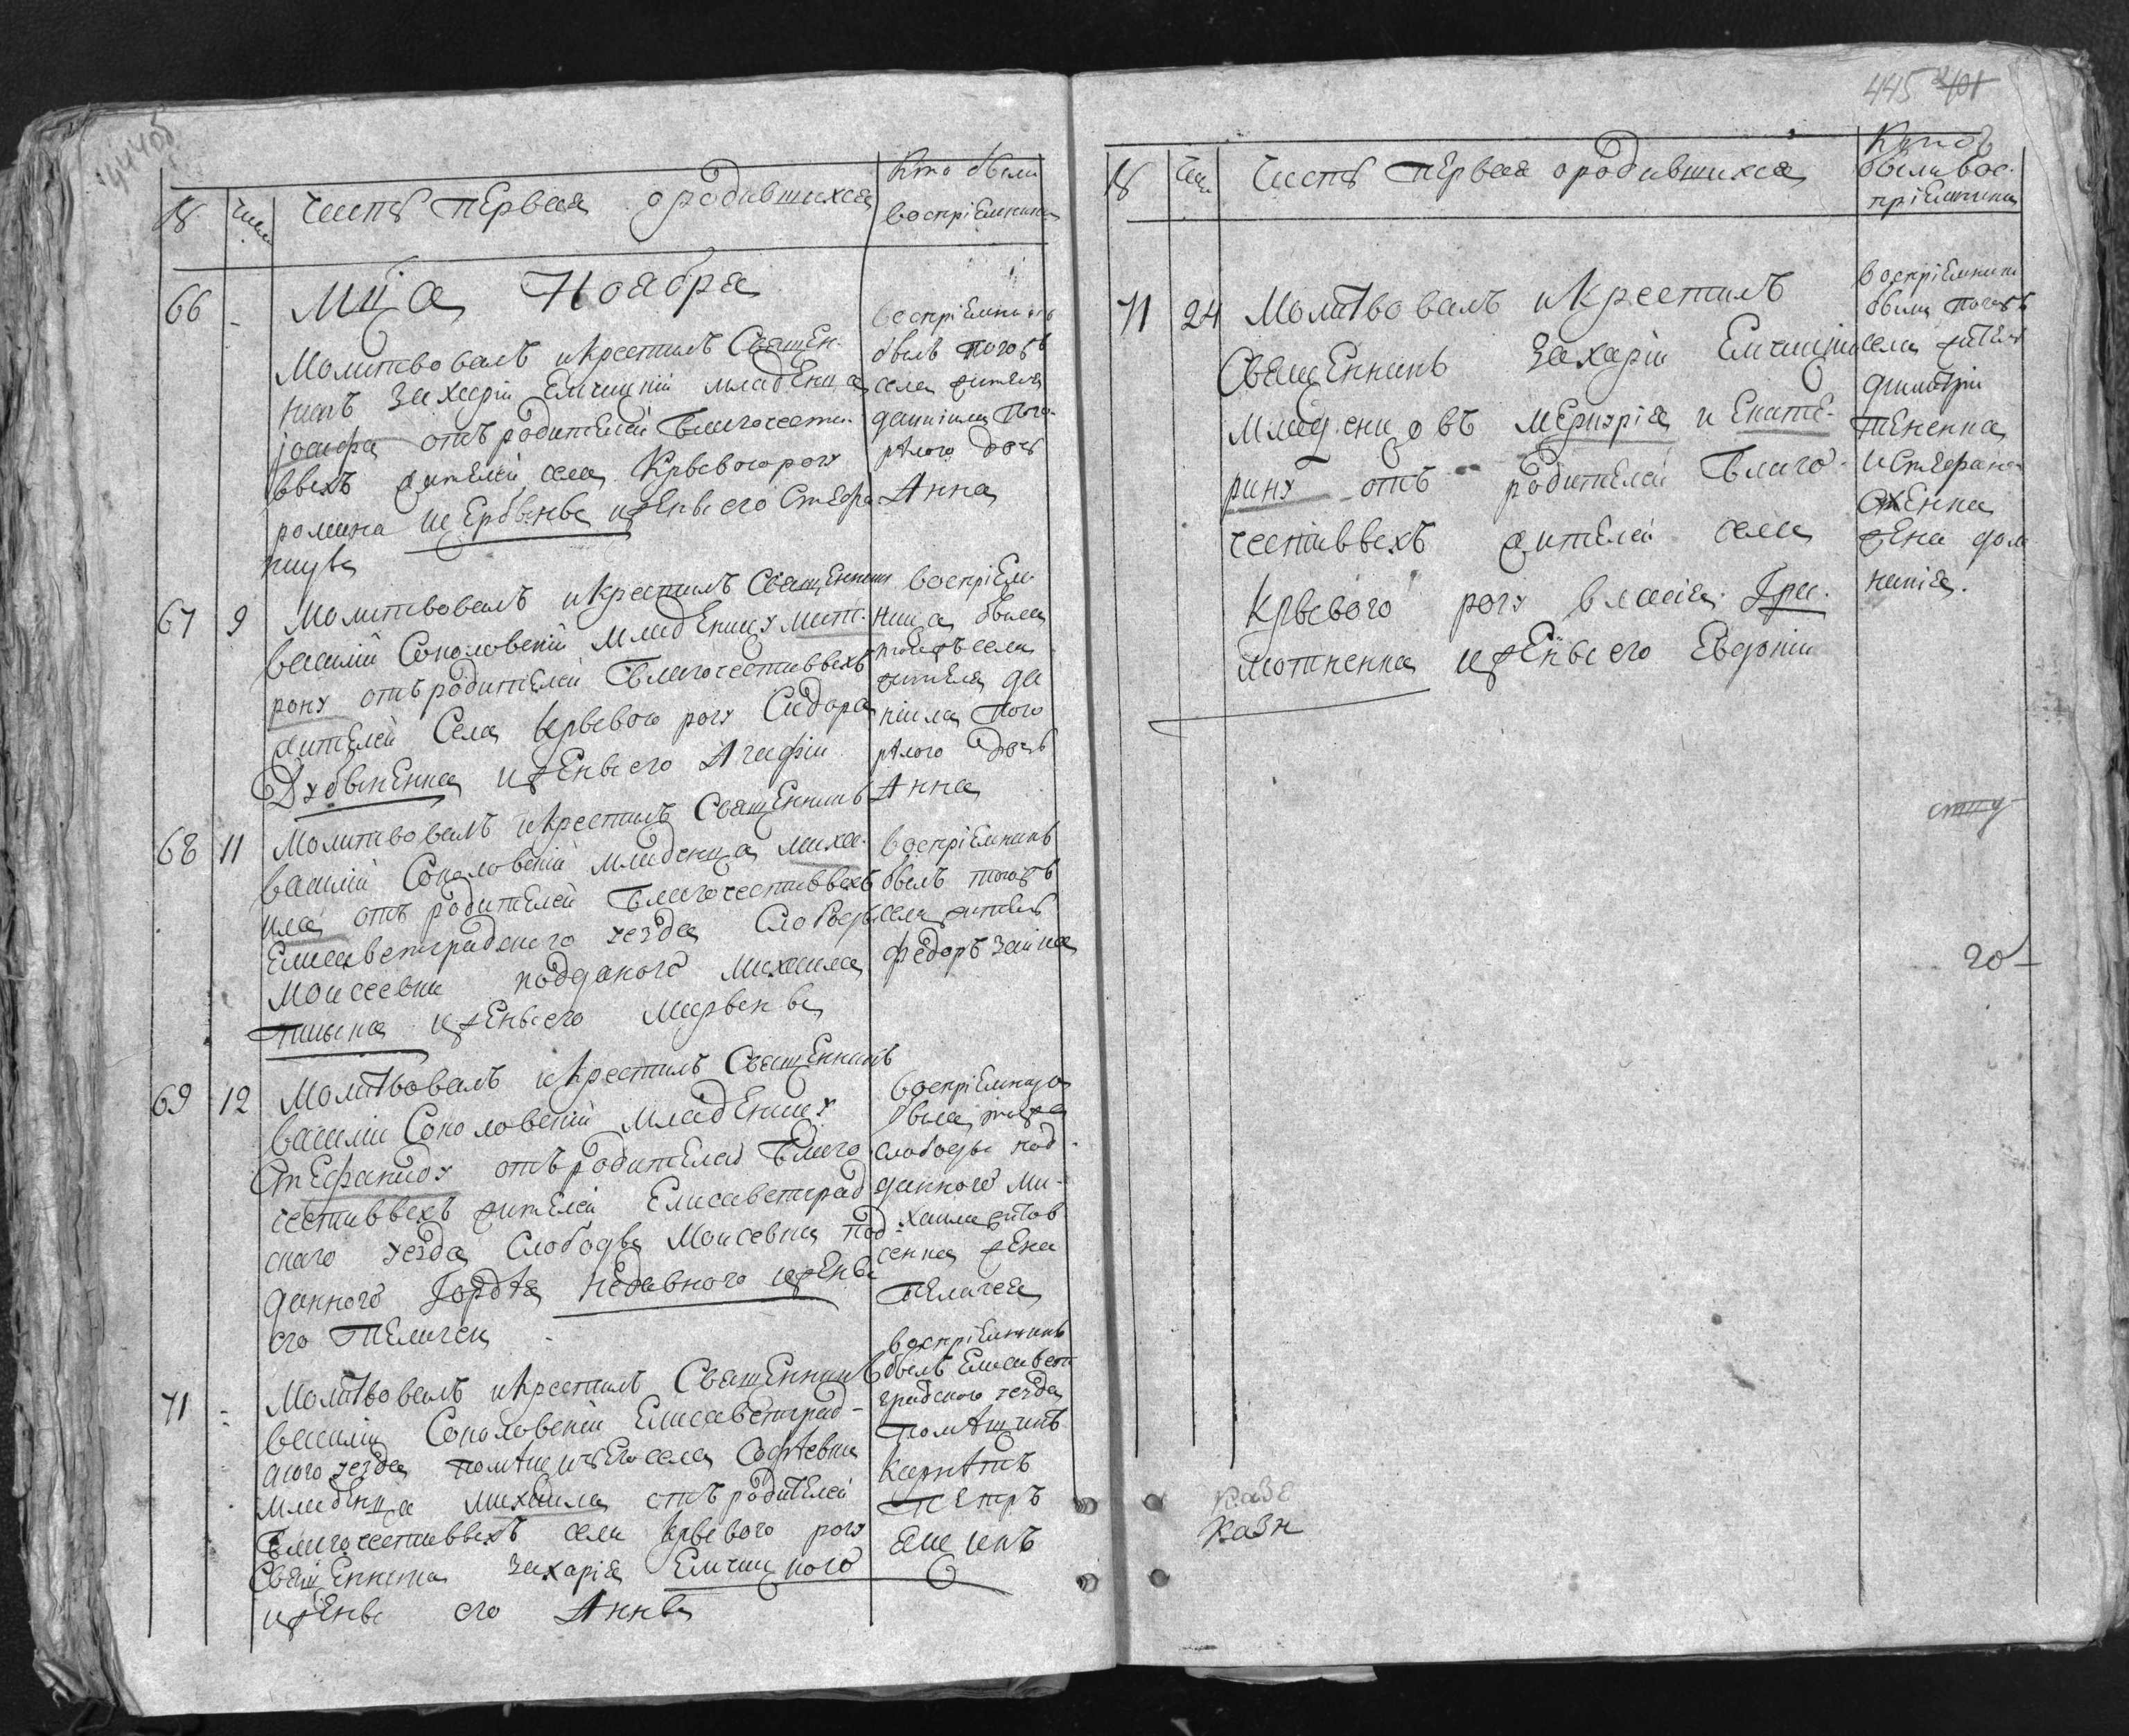 №
Число
Часть первая ородившихся
Кто были
воспріемники
Мца Ноября
66
Молитвовалъ икрестилъ Священ-
никъ Захарій Емчицкій младенца
іосифа отъ родителей Благочести-
выхъ жителей села Крывогорогу
романа
ижены его Стефа
ниды
воспріемникъ
былъ тогожъ
села жителя
даниила Пого
рѣлого дочь
Анна
67
9
Молитвовалъ икрестилъ Священникъ
василій Соколовскій младеницу мат-
рону отъ родителей Благочестивыхъ
жителей Села Крывого рогу Сидора
Дубыненка ижены его Агафіи
воспріем-
ница была
тогожъ села
жителя да
ніила Пого
рѣлого дочь
Анна
68
11
Молитвовалъ икрестилъ Священникъ
василій Соколовскій младенца михаи-
ила отъ родителей Благочестивыхъ
Елисаветградского уезда Слободы
Моисеевки подданого михаила
ижены его
воспріемникъ
былъ тогожъ
села житель
федоръ Заика
69
12
Молитвовалъ икрестилъ Священникъ
василій Соколовскій младеницу
Стефаниду отъ родителей Благо
честивыхъ жителей Елисаветград
скаго уезда Слободы Моисевки под
данного Гордѣя недавного ижены
его Пелагеи
воспріемница
была тояжъ
слободы под
данного ми-
хаила
жена
Пелагея
71
Молитвовалъ икрестилъ Священникъ
василій Соколовскій Елисаветград-
ского уезда помѣщичего села Софіевки
младенца михаила отъ родителей
Благочестивыхъ села Крывого рогу
Священника Захарія Емчицкого
ижены его Анны
воспріемникъ
былъ Елисавет
градского уезда
помѣщикъ
Петръ
445 401
№
Чис.
Часть первая ородившихся
Кто
были вос-
пріемники
71
24
Молитвовалъ икрестилъ
Священникъ Захарій Емчицкій
младенцовъ меркурія и Екате-
рину отъ родителей Благо-
честивыхъ жителей села
Крывого рогу власія Гре-
ижены его Евдокіи
воспріемники
были тогожъ
села житель
димитрій
и Стефана
жена дом
никія.
20
Казе
Казн